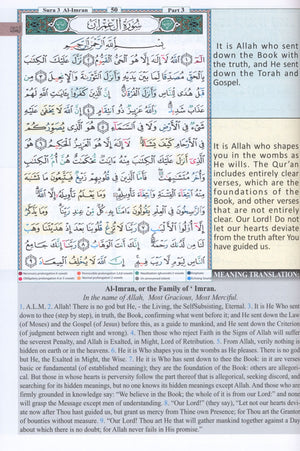 Sura 3 Al-Imran 50 Part 3
سُورَةُ آلِ عِمْرَانَ
بِسْمِ اللَّهِ الرَّحْمَٰنِ الرَّحِيمِ
الٓمٓ ١ اللَّهُ لَا إِلَٰهَ إِلَّا هُوَ الْحَيُّ الْقَيُّومُ ٢ نَزَّلَ عَلَيْكَ الْكِتَٰبَ
بِالْحَقِّ مُصَدِّقًا لِّمَا بَيْنَ يَدَيْهِ وَأَنزَلَ التَّوْرَىٰةَ وَالْإِنجِيلَ ٣ مِن
قَبْلُ هُدًى لِّلنَّاسِ وَأَنزَلَ الْفُرْقَانَ إِنَّ الَّذِينَ كَفَرُوا بِـَٔايَٰتِ
اللَّهِ لَهُمْ عَذَابٌ شَدِيدٌ وَاللَّهُ عَزِيزٌ ذُو انتِقَامٍ ٤ إِنَّ اللَّهَ لَا يَخْفَىٰ عَلَيْهِ
شَيْءٌ فِي الْأَرْضِ وَلَا فِي السَّمَاءِ ٥ هُوَ الَّذِي يُصَوِّرُكُمْ
فِي الْأَرْحَامِ كَيْفَ يَشَاءُ لَا إِلَٰهَ إِلَّا هُوَ الْعَزِيزُ الْحَكِيمُ ٦
هُوَ الَّذِي أَنزَلَ عَلَيْكَ الْكِتَٰبَ مِنْهُ ءَايَٰتٌ مُّحْكَمَٰتٌ هُنَّ أُمُّ الْكِتَٰبِ
وَأُخَرُ مُتَشَٰبِهَٰتٌ فَأَمَّا الَّذِينَ فِي قُلُوبِهِمْ زَيْغٌ فَيَتَّبِعُونَ
مَا تَشَٰبَهَ مِنْهُ ابْتِغَاءَ الْفِتْنَةِ وَابْتِغَاءَ تَأْوِيلِهِ وَمَا يَعْلَمُ تَأْوِيلَهُ
إِلَّا اللَّهُ وَالرَّٰسِخُونَ فِي الْعِلْمِ يَقُولُونَ ءَامَنَّا بِهِ كُلٌّ مِّنْ عِندِ رَبِّنَا وَمَا يَذَّكَّرُ
إِلَّا أُولُوا الْأَلْبَٰبِ ٧ رَبَّنَا لَا تُزِغْ قُلُوبَنَا بَعْدَ إِذْ هَدَيْتَنَا
وَهَبْ لَنَا مِن لَّدُنكَ رَحْمَةً إِنَّكَ أَنتَ الْوَهَّابُ ٨ رَبَّنَا
إِنَّكَ جَامِعُ النَّاسِ لِيَوْمٍ لَّا رَيْبَ فِيهِ إِنَّ اللَّهَ لَا يُخْلِفُ الْمِيعَادَ ٩
It is Allah who sent
down the Book with
the truth, and He sent
down the Torah and
Gospel.
It is Allah who shapes
you in the wombs as
He wills. The Qur'an
includes entirely clear
verses, which are the
foundations of the
Book, and other verses
that are not entirely
clear. Our Lord! Do not
let our hearts deviate
from the truth after You
have guided us.
MEANING TRANSLATION
Al-Imran, or the Family of ‘ Imran.
In the name of Allah, Most Gracious, Most Merciful.
1. A.L.M. 2. Allah! There is no god but He, - the Living, the SelfSubsisting, Eternal. 3. It is He Who sent
down to thee (step by step), in truth, the Book, confirming what went before it; and He sent down the Law
(of Moses) and the Gospel (of Jesus) before this, as a guide to mankind, and He sent down the Criterion
(of judgment between right and wrong). 4. Then those who reject Faith in the Signs of Allah will suffer
the severest Penalty, and Allah is Exalted, in Might, Lord of Retribution. 5. From Allah, verily nothing is
hidden on earth or in the heavens. 6. He it is Who shapes you in the wombs as He pleases. There is no god
but He, the Exalted in Might, the Wise. 7. He it is Who has sent down to thee the Book: in it are verses
basic or fundamental (of established meaning); they are the foundation of the Book: others are allegori-
cal. But those in whose hearts is perversity follow the part thereof that is allegorical, seeking discord, and
searching for its hidden meanings, but no one knows its hidden meanings except Allah. And those who are
firmly grounded in knowledge say: "We believe in the Book; the whole of it is from our Lord:" and none
will grasp the Message except men of understanding. 8. "Our Lord!" (they say), "Let not our hearts devi-
ate now after Thou hast guided us, but grant us mercy from Thine own Presence; for Thou art the Grantor
of bounties without measure. 9. "Our Lord! Thou art He that will gather mankind together against a Day
about which there is no doubt; for Allah never fails in His promise."